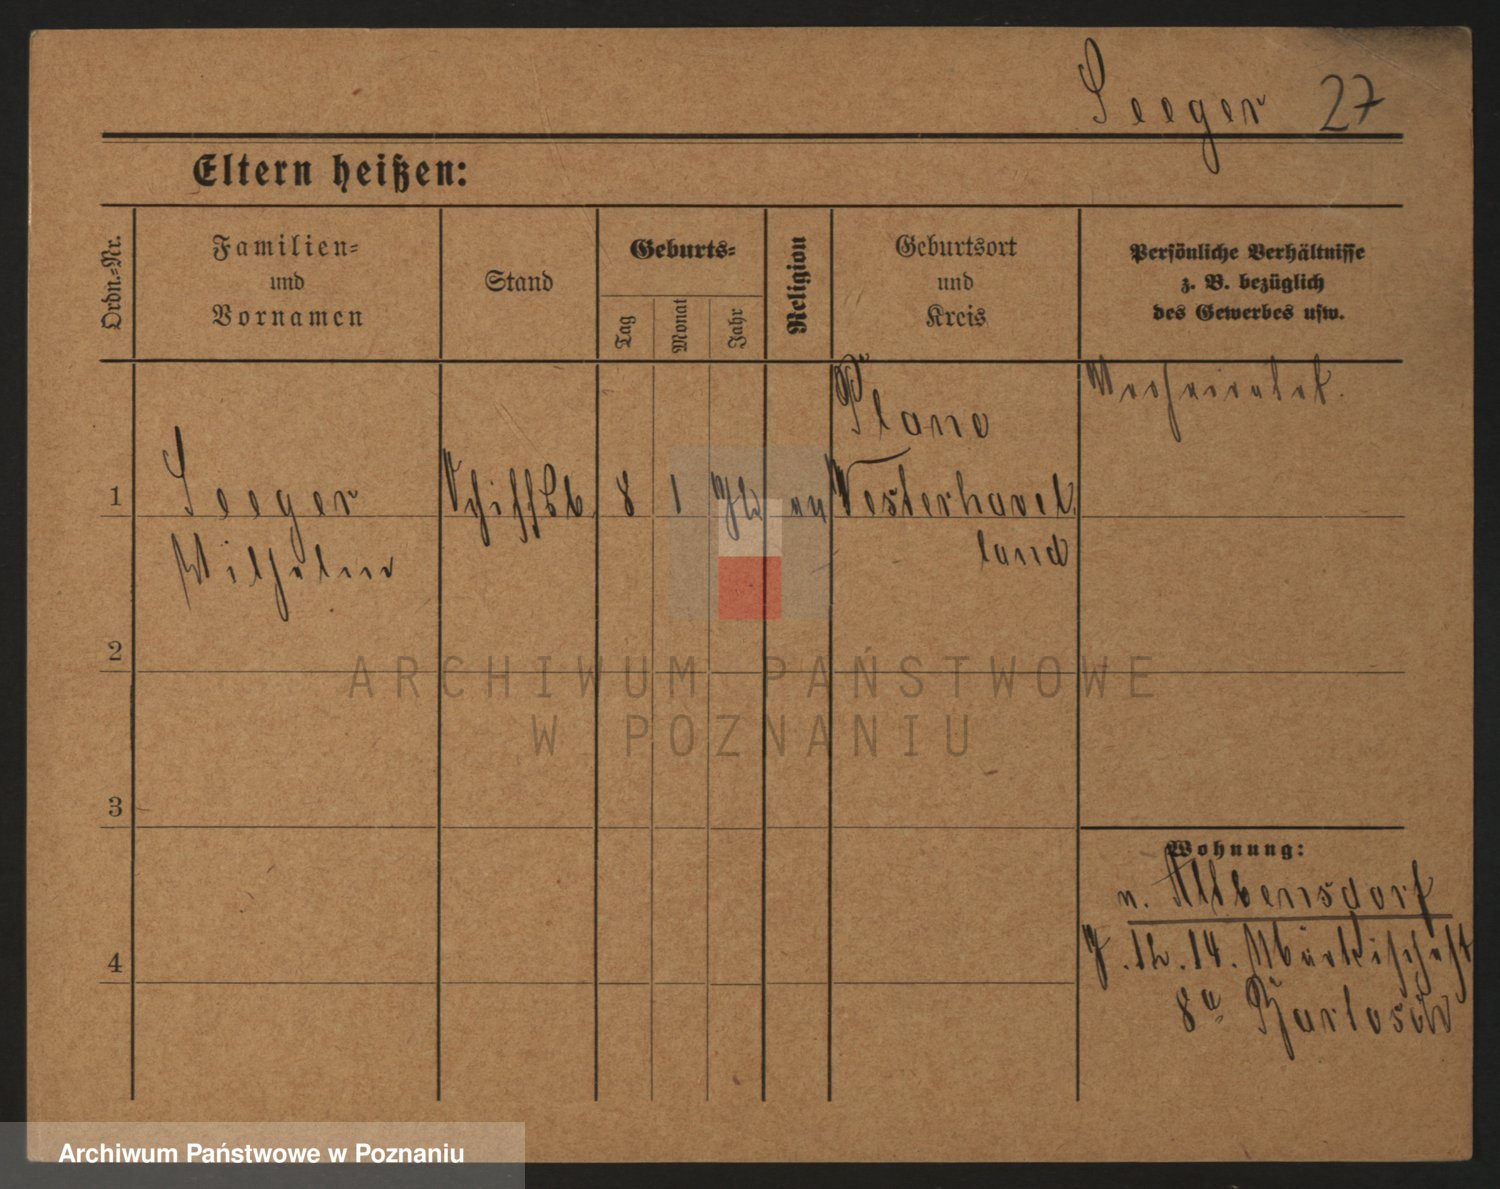 Seeger 27
Eltern heißen:
Ordn.=Nr.
Familien=
und
Vornamen
Stand
Geburts=
Tag
Monat
Jahr
Religion
Geburtsort
und
Kreis
Persönliche Verhältnisse
z. B. bezüglich
des Gewerbes usw.
1
Seeger
Wilhelm
8
1
ev
Westerhavel
land
Verheiratet.
2
3
4
Wohnung:
n.
8a
ARCHIWUM PAŃSTWOWE
W POZNANIU
Archiwum Państwowe w Poznaniu